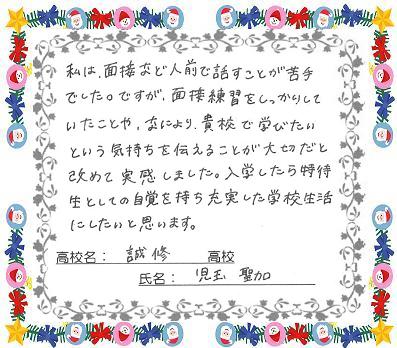 私は、面接など人前で話すことが苦手
でした。ですが、面接練習をしっかりして
いたことや、なにより、貴校で学びたい
という気持ちを伝えることが大切だと
改めて実感しました。入学したら特待
生としての自覚を持ち充実した学校生活
にしたいと思います。
高校名： 誠修 高校
氏名： 児玉 聖加